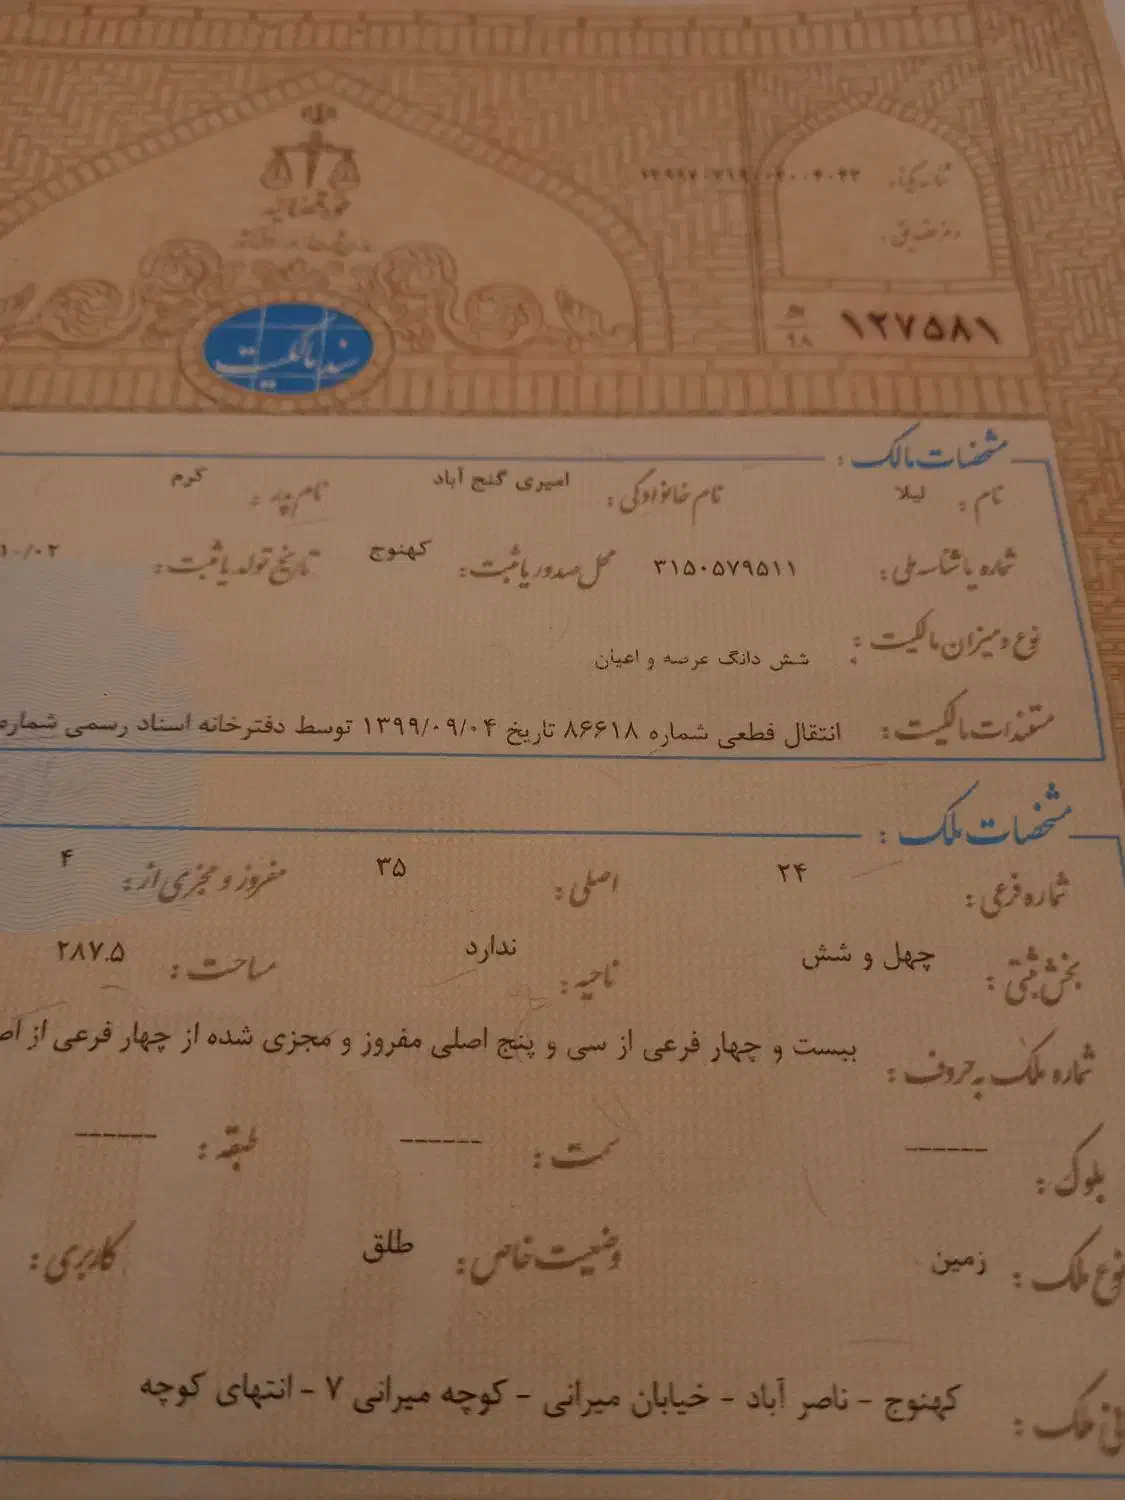 قوه قضائیه
شناسه یکتا:
رمز تصدیق:
۱۲۷۵۸۱
۹۸
سند مالکیت
مشخصات مالک:
نام: لیلا نام خانوادگی: امیری گنج آباد نام پدر: کرم
شماره یا شناسه ملی: ۳۱۵۰۵۷۹۵۱۱ محل صدور یا ثبت: کهنوج تاریخ تولد یا ثبت: ۱۰/۰۲
نوع و میزان مالکیت: شش دانگ عرصه و اعیان
مستندات مالکیت: انتقال قطعی شماره ۸۶۶۱۸ تاریخ ۱۳۹۹/۰۹/۰۴ توسط دفترخانه اسناد رسمی شماره
مشخصات ملک:
شماره فرعی: ۲۴ اصلی: ۳۵ مفروز و مجزی از: ۴
بخش ثبتی: چهل و شش ناحیه: ندارد مساحت: ۲۸۷.۵
شماره ملک به حروف: بیست و چهار فرعی از سی و پنج اصلی مفروز و مجزی شده از چهار فرعی از
بلوک: ------ سمت: ------ طبقه: ------
نوع ملک: زمین وضعیت خاص: طلق کاربری:
ملک: کهنوج - ناصر آباد - خیابان میرانی - کوچه میرانی ۷ - انتهای کوچه